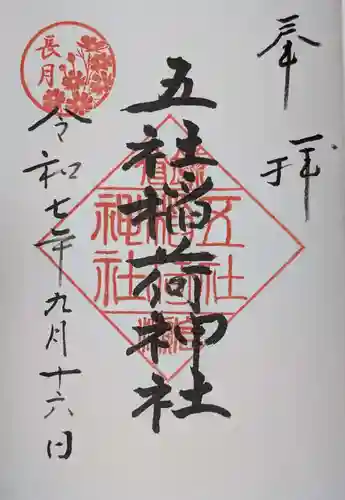 奉拝
五社稲荷神社
令和七年九月十六日
長月
五社
稲荷
神社